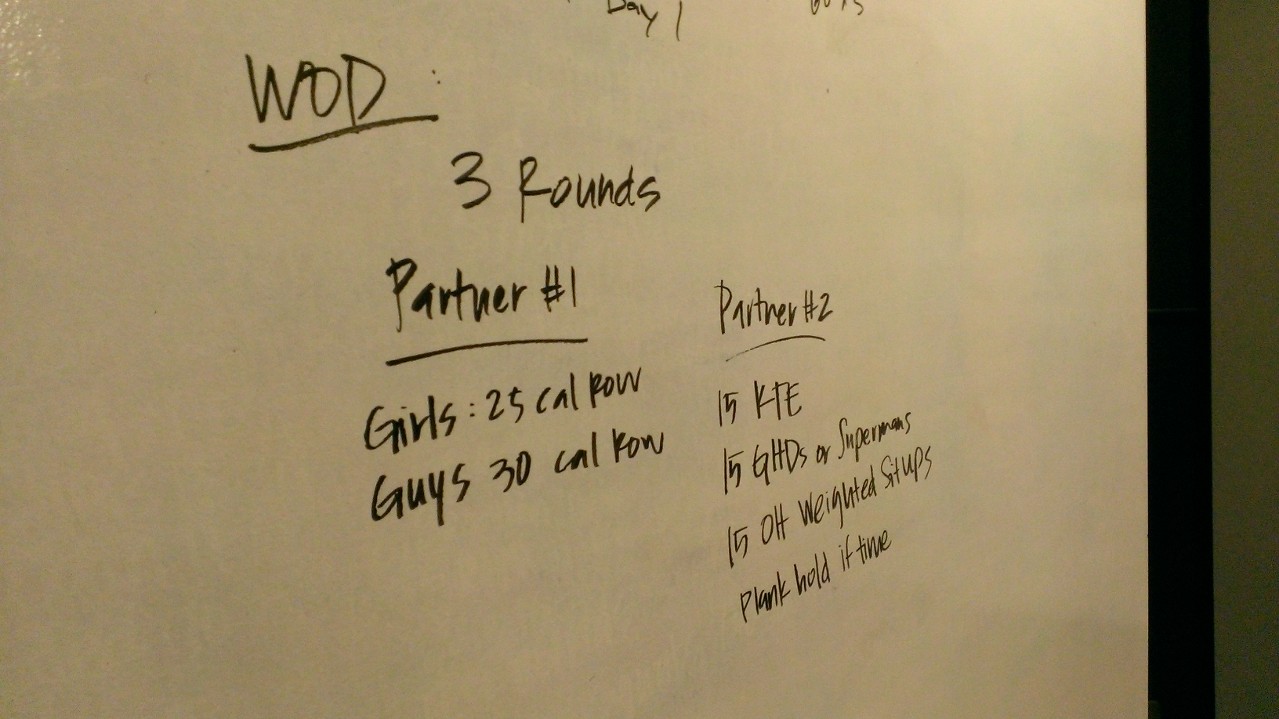 Day 1
WOD :
3 Rounds
Partner #1
Girls : 25 cal Row
Guys 30 cal Row
Partner #2
15 KTE
15 GHDs or Supermans
15 OH Weighted Situps
Plank hold if time